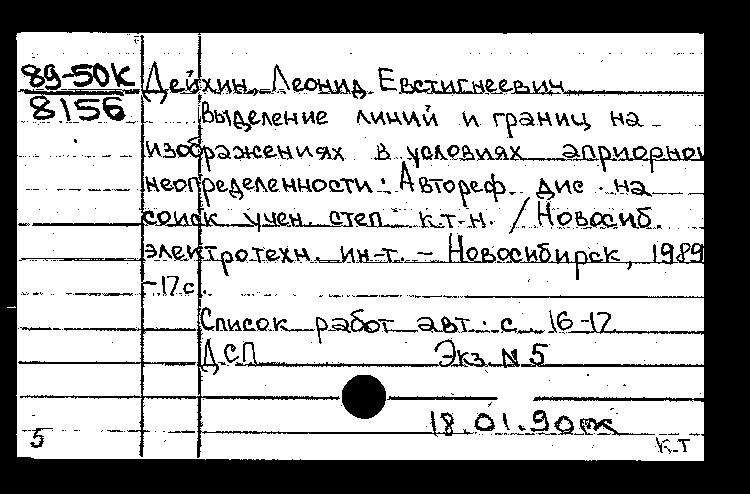 89-50К Дейхин, Леонид Евстигнеевич
8156
Выделение линий и границ на
изображениях в условиях априорной
неопределенности: Автореф. дис. на
соиск учен. степ. к.т.н. / Новосиб.
электротехн. ин-т. – Новосибирск, 1989
–17с.
Список работ авт.: с. 16-17
ДСП Экз. N 5
18.01.90
5 К-Т